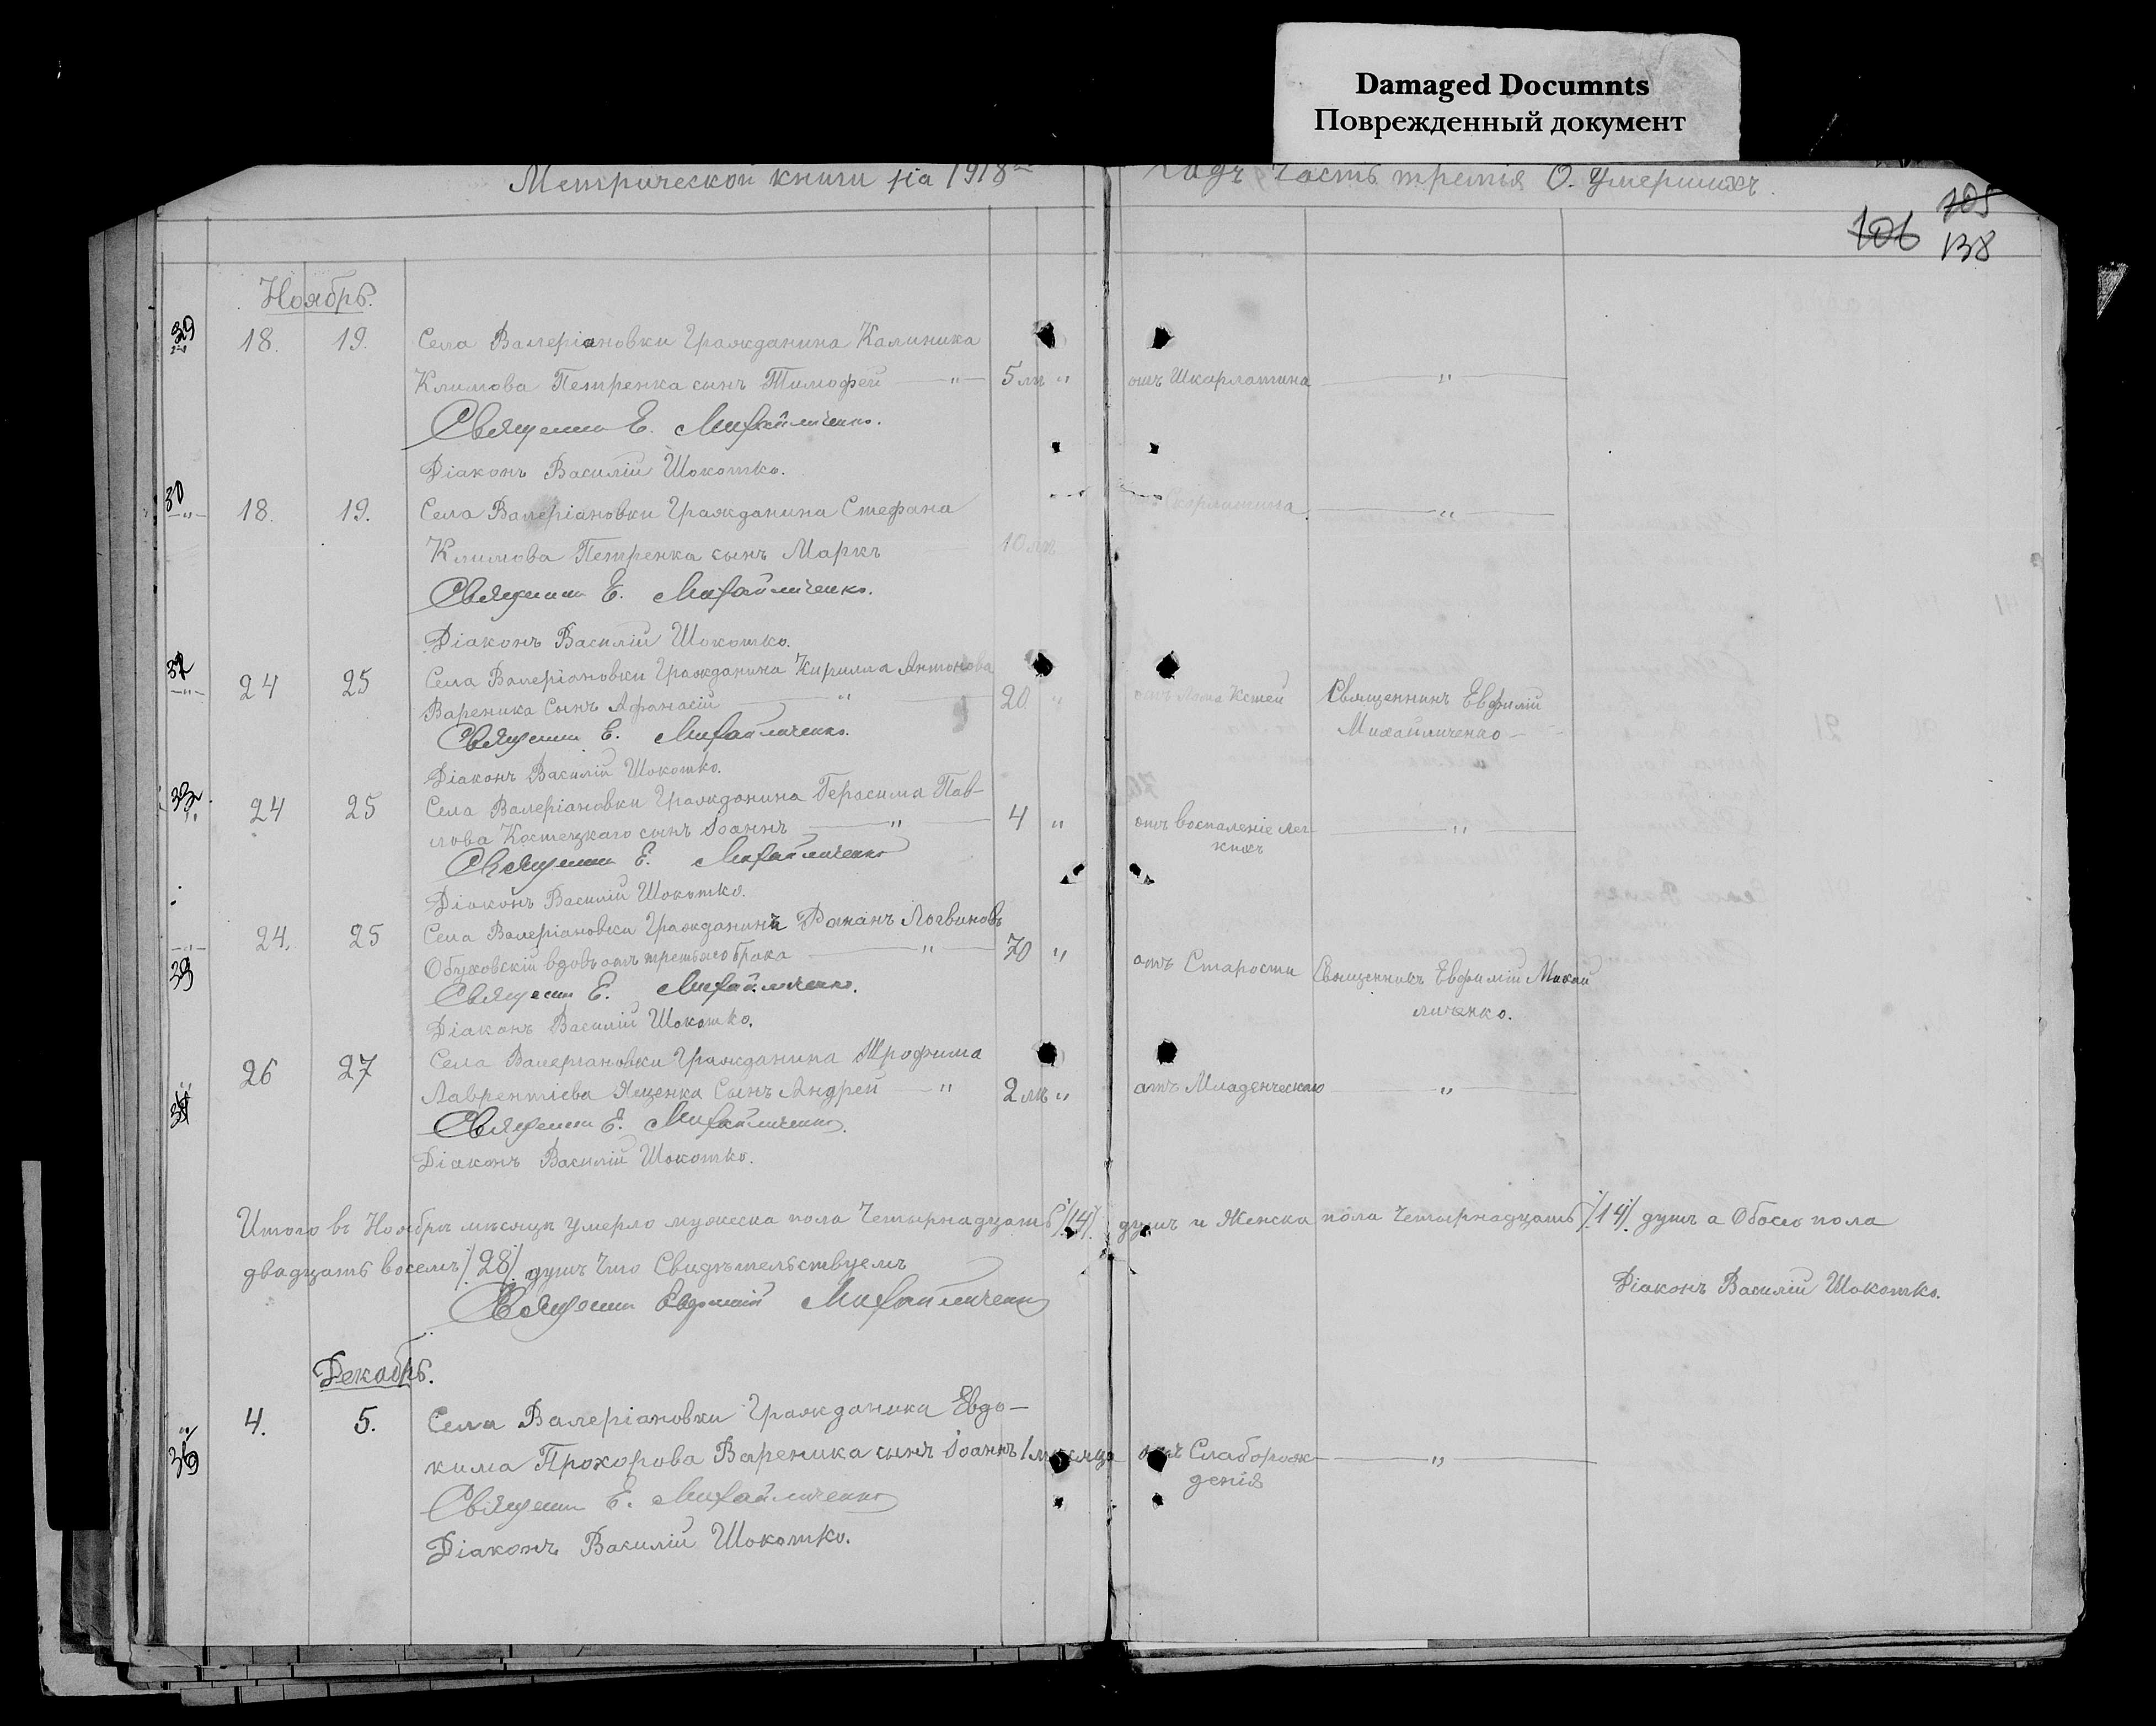 Damaged Documnts
Поврежденный документ
Метрической книги на 1918 годъ Часть третія О. умершихъ.
105
106
138
Ноябрь.
18. 19. Села Валеріановки Гражданина Калиника
Климова Петренка сынъ Тимофей — " — 5 лѣ " отъ Шкарлатина — " —
Священ Е. Михайличенко.
Діаконъ Василій Шокотко.
18. 19. Села Валеріановки Гражданина Стефана Скарлатина — " —
Климова Петренка сынъ Маркъ 10 лѣ
Священ Е. Михайличенко.
Діаконъ Василій Шокотко.
24 25 Села Валеріановки Гражданина Кирилла Антонова
Вареника Сынъ Афанасій — " — 20 " отъ Лома Костей Священникъ Евфимій
Михайличенко —
Священ Е. Михайличенко.
Діаконъ Василій Шокотко.
24 25 Села Валеріановки Гражданина Герасима Пав-
лова Костецкаго сынъ Іоаннъ — " — 4 " отъ воспаленіе лег — " —
кихъ
Священ Е. Михайличенко
Діаконъ Василій Шокотко.
24. 25 Села Валеріановки Гражданинъ Романъ Логвиновъ
Обуховскій вдовъ отъ третьяго брака — " — 70 " отъ Старости Священникъ Евфимій Михай
личенко.
Священ Е. Михайличенко.
Діаконъ Василій Шокотко.
26 27 Села Валеріановки Гражданина Трофима
Лаврентіева Яценка Сынъ Андрей — " 2 лѣ " отъ Младенческаго — " —
Священ Е. Михайличенко.
Діаконъ Василій Шокотко.
Итого въ Ноябрѣ мѣсяцѣ умерло мужеска пола Четырнадцать /14/ душъ и Женска пола Четырнадцать /14/ душъ а Обоего пола
двадцать восемъ /28/ душъ Что Свидѣтельствуемъ
Священ Евфимій Михайличенко Діаконъ Василій Шокотко.
Декабрь.
4. 5. Села Валеріановки Гражданина Евдо-
кима Прохорова Вареника сынъ Іоаннъ 1 мѣсяца отъ Слаборож — " —
денія
Священ Е. Михайличенко
Діаконъ Василій Шокотко.